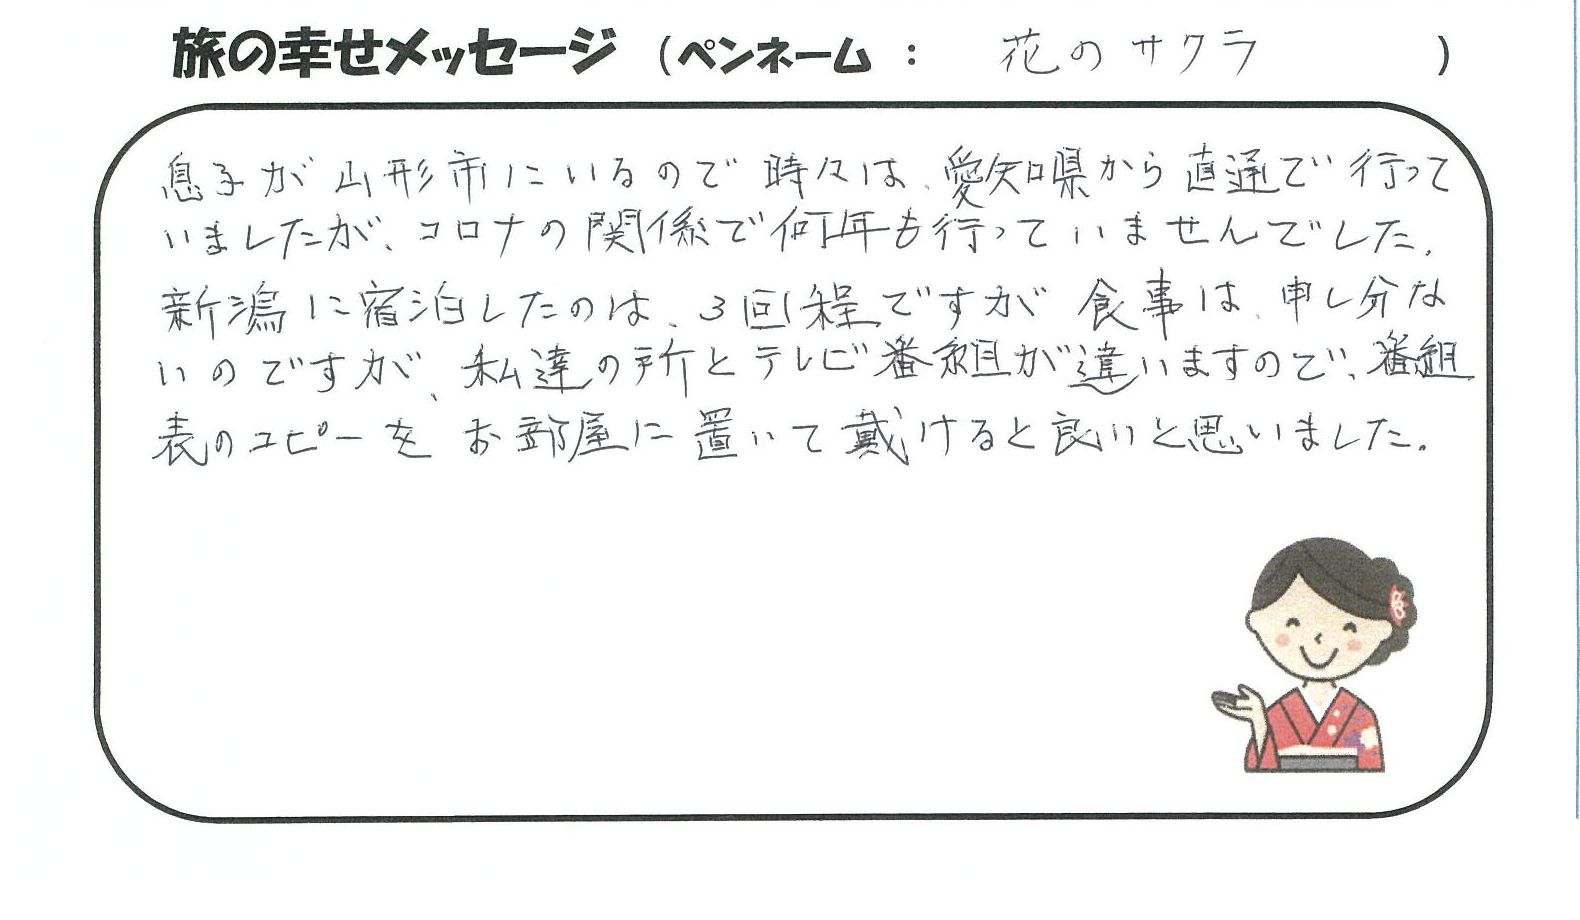 旅の幸せメッセージ (ペンネーム : 花のサクラ )
息子が山形市にいるので時々は、愛知県から直通で行って
いましたが、コロナの関係で何年も行っていませんでした。
新潟に宿泊したのは、3回程ですが食事は、申し分な
いのですが、私達の所とテレビ番組が違いますので、番組
表のコピーをお部屋に置いて戴けると良いと思いました。